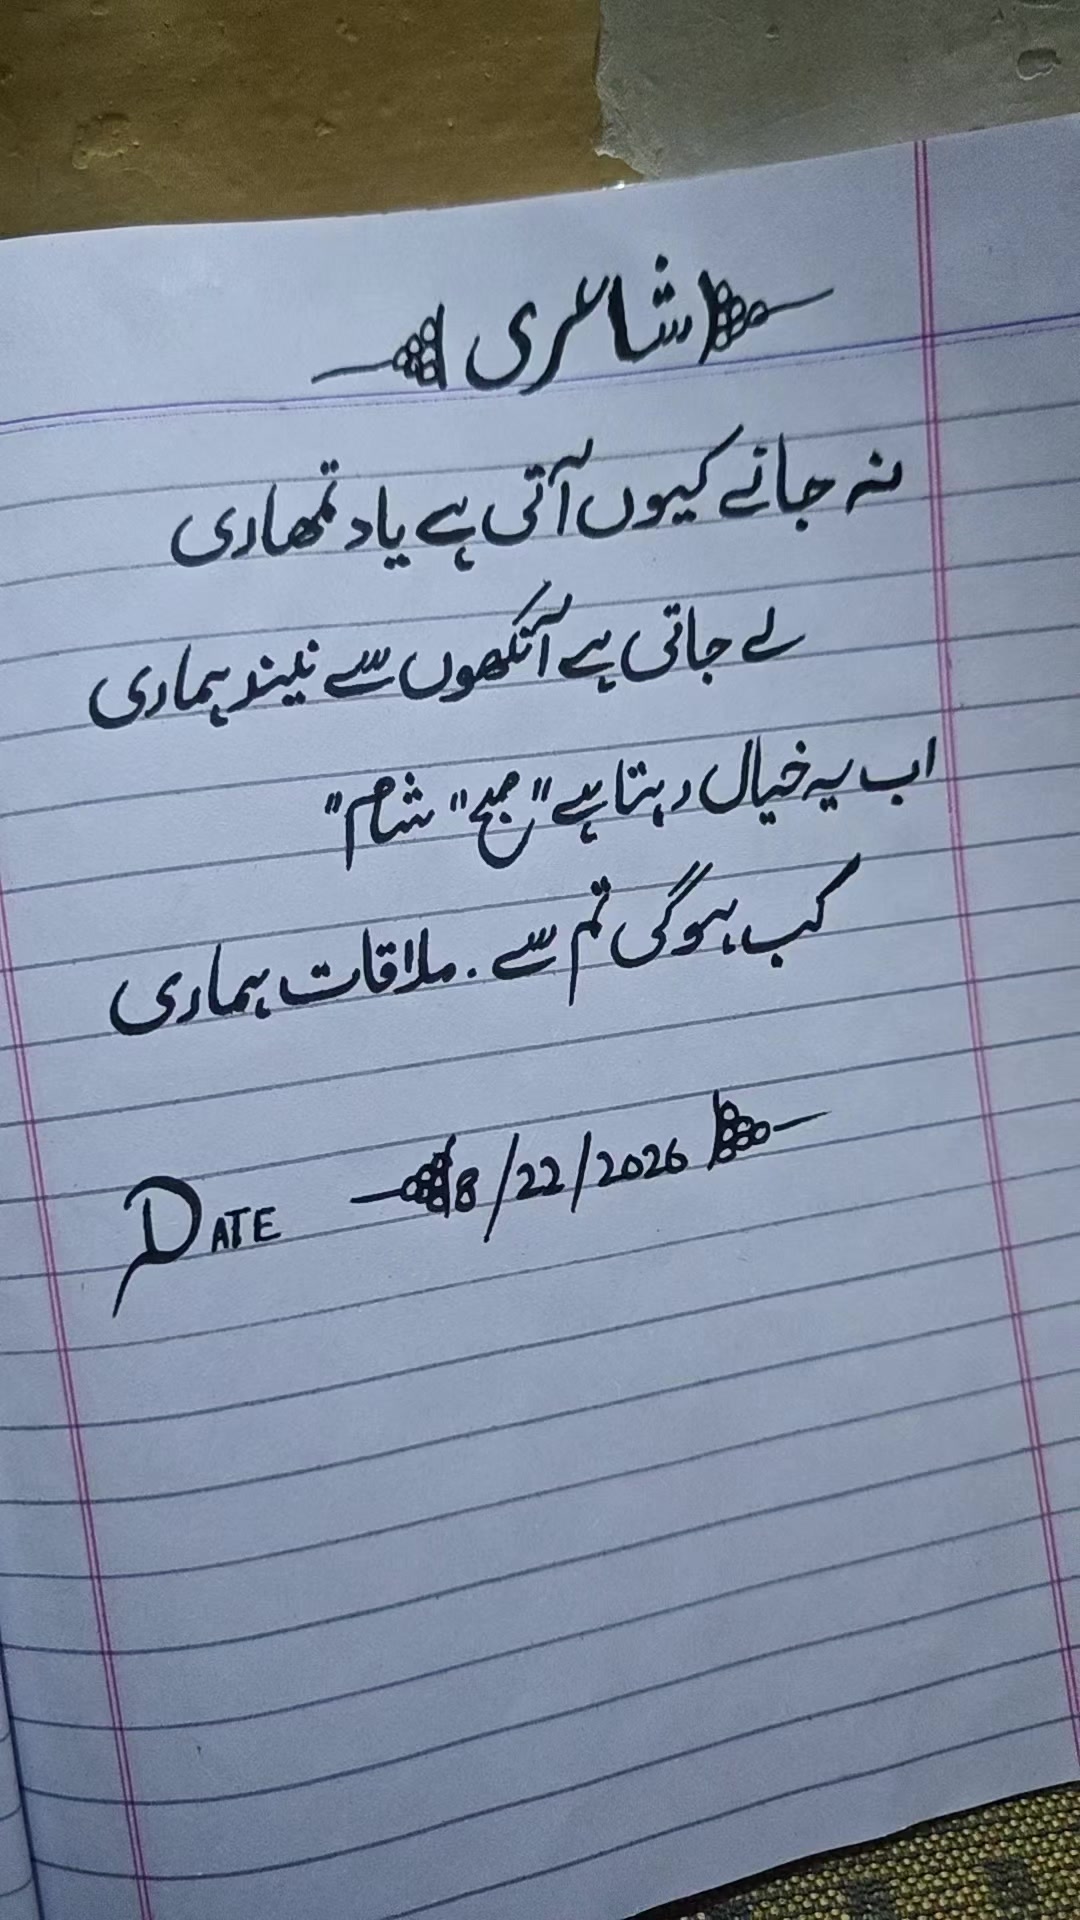 شاعری
نہ جانے کیوں آتی ہے یاد تمھاری
لے جاتی ہے آنکھوں سے نیند ہماری
اب یہ خیال رہتا ہے "صبح" شام"
کب ہوگی تم سے . ملاقات ہماری
DATE 8/22/2026